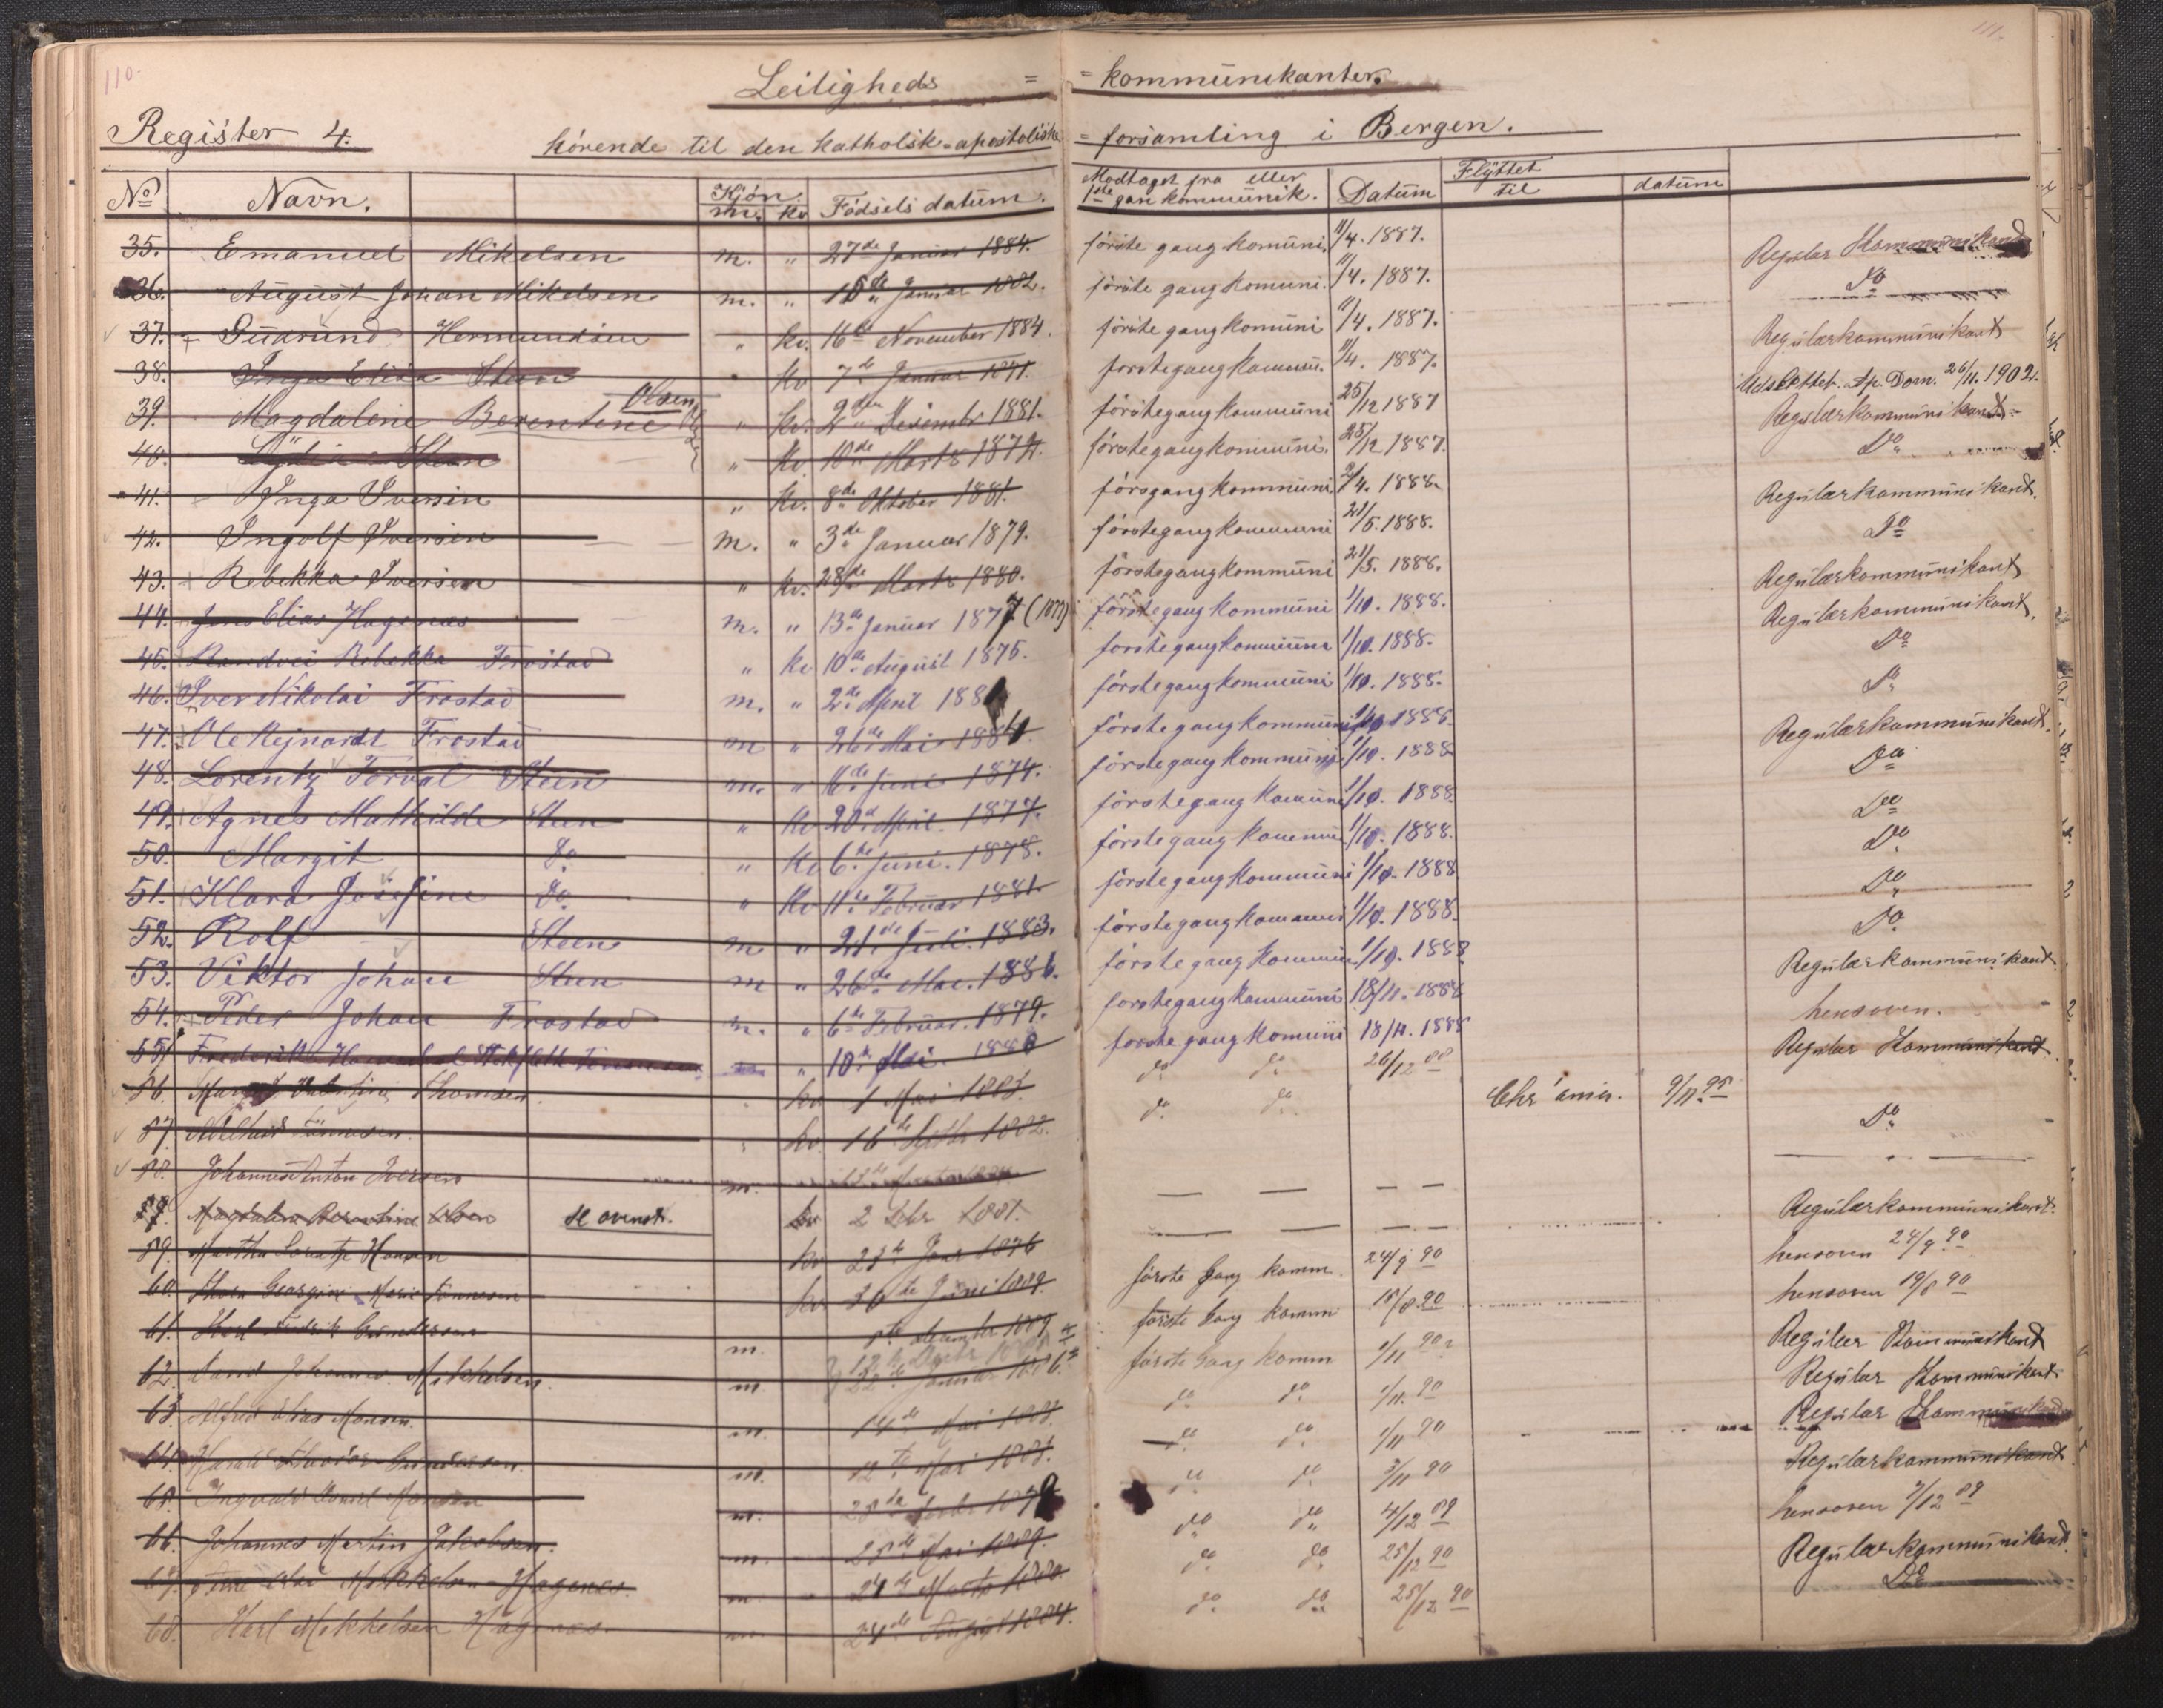 110. 111.
Leiligheds = = kommunikanter.
Register 4. hörende til den katholsk-apostoliske = forsamling i Bergen.
No Navn. Kjön m. kv Födsels datum. Modtaget fra eller 1ste gan kommunik. Datum Flyttet til datum
35. Emanuel Mikelsen m. " 27de Januar 1884. förite gang komuni. 11/4. 1887. Regular Kommunikant
36. August Johan Mikelsen m. " Januar 1882. förite gang komuni. 11/4. 1887. Do
37. Hermundsen " kv. 16de November 1884. förite gang komuni 11/4. 1887. Regulærkommunikant
38. Inga Elisa Steen " kv 7de Januar forstegangkommu. 11/4. 1887. Udslettet. Ap. Dom. 26/11. 1902.
39. Magdalene Berentine Olsen " kv. 2den Desembr 1881. förstegangkommuni 25/12 1887 Regulærkommunikant
40. Steen " kv. 10de Marts 1872. förstegangkommuni. 25/12 1887. Do
41. Inga Iversen " kv. 8de Oktober 1881. försgangkommuni 2/4. 1888. Regulærkommunikant.
42. Ingolf Iversen m. " 3de Januar 1879. förstegangkommuni 21/5. 1888. Do
43. Rebekka Iversen " kv. 28de Marts 1880. förstegangkommuni 21/5. 1888. Regulærkommunikant
44. Jens Elias Hagenæs m. " 13de Januar 1877 förstegang kommuni 1/10. 1888. Regulærkommunikant.
45. Rebekka Frostad " kv 10de August 1875. forstegangkommuna 1/10. 1888. Do
46. Iver Nikolai Frostad m. " 2de April 188 förstegangkommuni 1/10. 1888. Do
47. Ole Rejnardt Frostad m " 26de Mai 1884. förstegangkommuni 1/10 1888. Regulærkommunikant.
48. Lorentz Torval Steen m. " 6de Juni 1874. förstegangkommuni 1/10. 1888 Do
49. Agnes Mathilde Steen " kv 20de April. 1877. förstegang komuni 1/10. 1888. Do
50. Margit do. " kv 6.de Juni. 1878. förstegang kommu 1/10. 1888. Do
51. Klara Josefine do. " kv 11te Februar 1881. förstegangkommuni 1/10. 1888 Do
52. Rolf Steen m " 21de Juli. 1883. förstegangkommuni 1/10. 1888. Do
53. Viktor Johan Steen m " 26de Mai. 1886. förstegang kommuni 1/10. 1888. Regulærkommunikant.
54. Peder Johan Frostad m. " 6te Februar. 1879. forstegangkommuni 18/11. 1888 hensoven.
55. Frederik " 10de Mai. 1880 forstegang komuni 18/11. 1888 Regular Kommunikant
56. Thomsen kv 1 Mai 1883. do do. 26/12 88
57. Tönnesen. kv 16de Septbr 1882. do. do. Chr'ania. 9/11. 95 Do
58. Johannes Anton Iversen m.
Magdalene Berentine Olsen se ovenst. kv 2 Dbr 1881. Regulærkommunikant
59. Martha Hansen kv 23de Janr 1876 förste Gang komm. 24/9 90 hensoven 24/9 90
60. Georgine Marie Tönnesen kv 30te Juni 1889. förste Gang komm 15/8. 90 hensoven 19/8 90
61. Karl Fredrik Gundersen m. december 1889 förste Gang komm 1/11 90 Regulær Kommunikant
62. David Johannes Mikkelsen. m. 22de Januar 1886. do do. 1/11. 90 Regular Kommunikant
63. Alfred Elias Monsen. m. 14de Mai do do. 1/11 90 Regular
64. Harald Gundersen. m. 12te Mai do do 3/11 90 Regulærkommunikant
65. Ingvald Daniel Monsen m. do do 4/12 89 hensoven 7/12 89
66. Johannes Martin Jakobsen. m. 28de Mai 1889. do do. 25/12 90 Regularkommunikant.
67. Mikkelsen Hagenæs. m. 24de Marts 1880. do do 25/12 90 Do
68. Karl Mikkelsen Hagenæs. m. 24de August 1884.